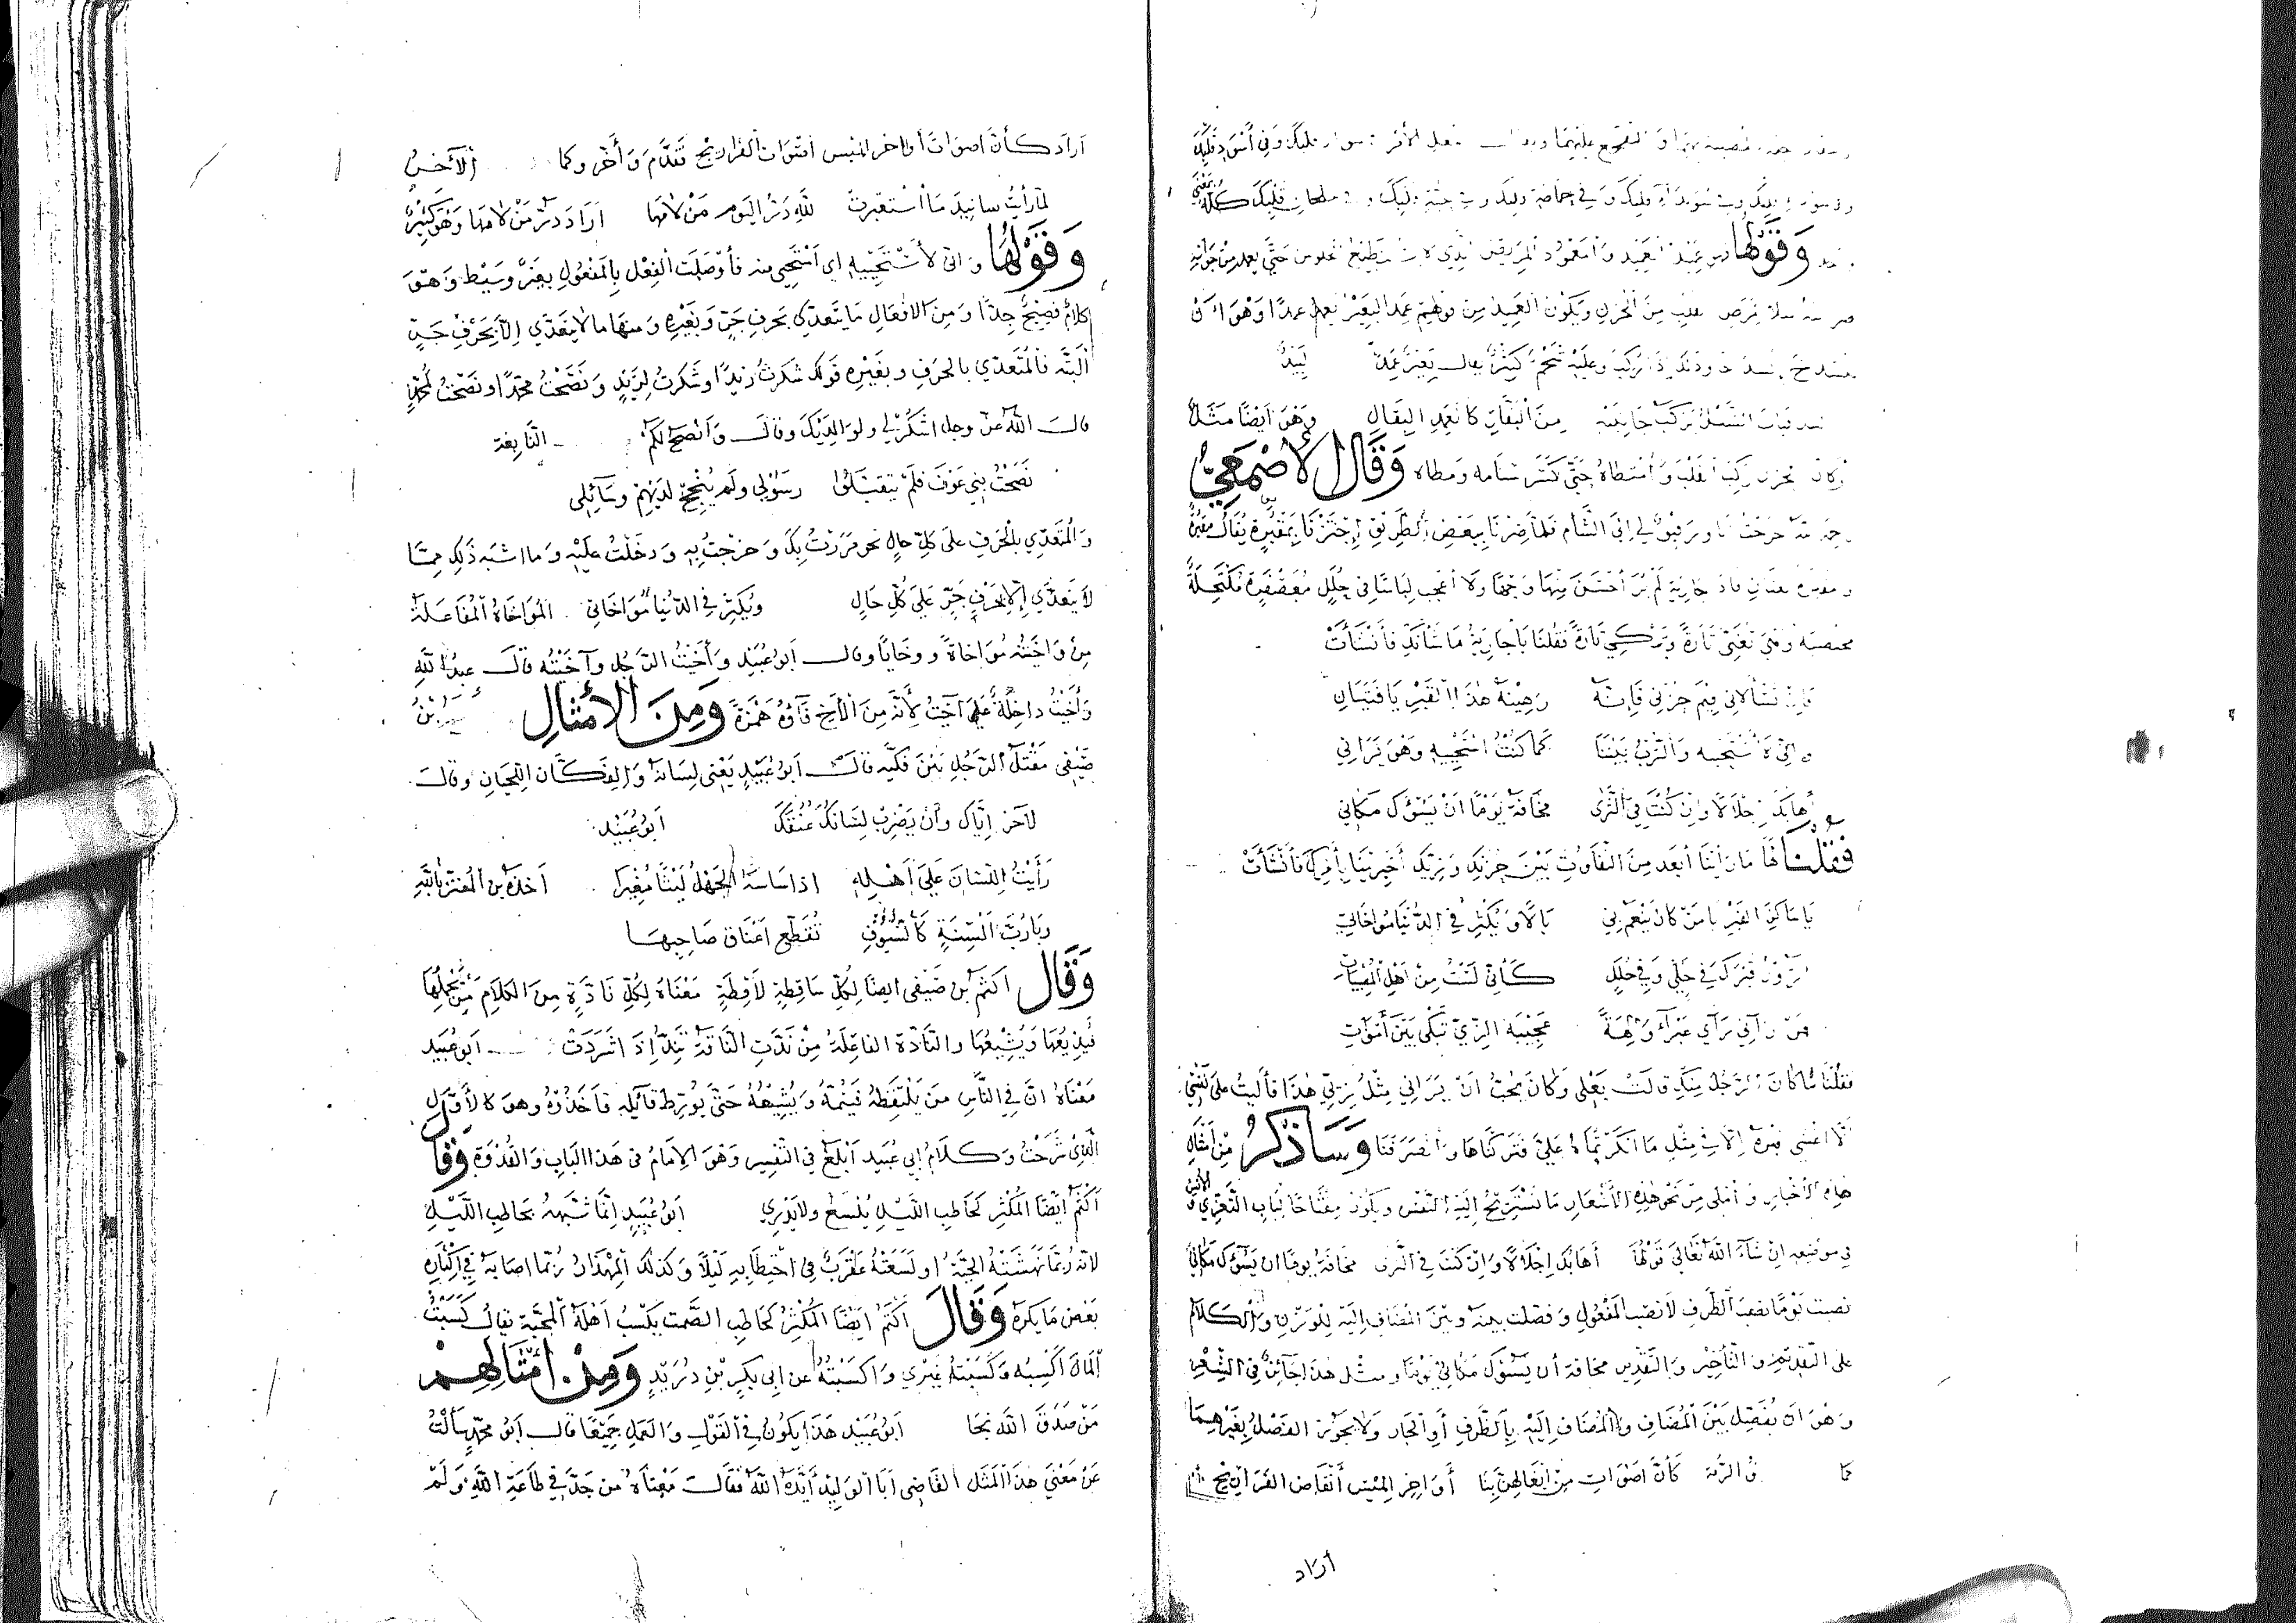 قلبك وفي أسود قلبك
قلبك وفي حماطة قلبك وفي حبة قلبك وفي جلجلان قلبك كله بمعنى
وقولها
من الحزن ويكون العميد من قولهم عمد البعير يعمد عمدا وهو أن
وعليه شحم كثير يقال بعير عمد لبيد
من البقار كالعمد الثقال وهو أيضا مثل
الحزن ركب القلب وامتطاه حتى كسر سنامه ومطاه وقال الأصمعي
رحمه الله خرجت أنا ورفيق لي إلى الشام فلما صرنا ببعض الطريق اجتزنا بمقبرة يقال
جارية لم نر أحسن منها وجها ولا أعجب لباسا في حلل معصفرة مكتحلة
وهي تغني تارة وتبكي تارة فقلنا يا جارية ما شأنك فأنشأت
فإن تسألاني فيم حزني فإنني رهينة هذا القبر يا فتيان
وإني لأستحييه والترب بيننا كما كنت أستحييه وهو يراني
أهابك إجلالا وإن كنت في الثرى مخافة يوما أن يسؤك مكاني
فقلنا لها ما رأينا أبعد من التفاوت بين حزنك وزيك أخبرينا بأمرك فأنشأت
يا ساكن القبر يا من كان ينعم بي بالا ويكثر في الدنيا مواخاتي
أزور قبرك في حلي وفي حلل كأنني لست من أهل المصيبات
فمن رآني رأى عبرى والهة عجيبة الزي تبكي بين أموات
فقلنا ما كان الرجل منك قالت بعلي وكان يحب أن يراني في مثل زيي هذا فآليت على نفسي
ألا أغشى قبره إلا في مثل ما أنكرتماه علي فتركناها وانصرفنا وسأذكر من أمثال
هذه الأخبار وأملي من نحو هذه الأشعار ما تستريح إليه النفس ويكون مفتاحا لباب التعزي
في موضعه إن شاء الله تعالى قولها أهابك إجلالا وإن كنت في الثرى مخافة يوما أن يسؤك مكاني
نصبت يوما نصب الظرف لا نصب المفعول وفصلت بينه وبين المضاف إليه للوزن والكلام
على التقديم والتأخير والتقدير مخافة أن يسؤك مكاني يوما ومثل هذا جائز في الشعر
وهو أن يفصل بين المضاف والمضاف إليه بالظرف أو الجار ولا يجوز الفصل بغيرهما
كما ذو الرمة كأن أصوات من إيغالهن بنا أواخر الميس أنقاض الفراريج
أراد
أراد كأن أصوات أواخر الميس أصوات الفراريج تقدم وأخر وكما الآخر
لما رأت ساتيدما استعبرت لله در اليوم من لامها أراد در من لامها وهو كثير
وقولها وإني لأستحييه أي أستحي منه فأوصلت الفعل بالمفعول بغير وسيط وهو
كلام فصيح جدا ومن الأفعال ما يتعدى بحرف جر وبغيره ومنها ما لا يتعدى إلا بحرف جر
ألبتة فالمتعدي بالحرف وبغيره قولك شكرت زيدا وشكرت لزيد ونصحت محمدا ونصحت لمحمد
قال الله عز وجل اشكر لي ولوالديك وقال وأنصح لكم النابغة
نصحت بني عوف فلم يتقبلوا رسولي ولم ينجح لديهم وسائلي
والمتعدي بالحرف على كل حال نحو مررت بك وخرجت به ودخلت عليه وما أشبه ذلك مما
لا يتعدى إلا بحرف جر على كل حال ويكثر في الدنيا مواخاتي المواخاة المفاعلة
من واخيته مواخاة ووخايا وقال أبو عبيد واخيت الرجل وآخيته قال عبد الله
واخيت داخلة على آخيت لأنه من الأخ فاؤه همزة ومن الأمثال
صيفي مقتل الرجل بين فكيه قال أبو عبيد يعني لسانه والفكان اللحيان وقال
لآخر إياك وأن يضرب لسانك عنقك أبو عبيد
رأيت اللسان على أهله إذا ساسه الجهل ليثا مغيرا أخذه بن المعتز بالله
ويا رب ألسنة كالسيوف تقطع أعناق صاحبها
وقال أكثم بن صيفي أيضا لكل ساقطة لاقطة معناه لكل نادة من الكلام من يحملها
فيذيعها ويشيعها والنادة الفاعلة من ندت الناقة تند إذا شردت أبو عبيد
معناه أن في الناس من يلتقطه فينمه ويشيعه حتى يورط قائله فاحذره وهو كالأول
الذي شرحت وكلام أبي عبيد أبلغ في التفسير وهو الإمام في هذا الباب والقدوة وقال
أكثم أيضا المكثر كحاطب الليل يلسع ولا يدري أبو عبيد إنما شبهه بحاطب الليل
لأنه ربما نهشته الحية أو لسعته عقرب في احتطابه ليلا وكذلك المهذار ربما أصابه في إكثاره
بعض ما يكره وقال أكثم أيضا المكثر كحاطب الصمت يكسب أهله المحبة يقال كسبت
المال أكسبه وكسبته غيري وأكسبته عن أبي بكر بن دريد ومن أمثالهم
من صدق الله نجا أبو عبيد هذا يكون في القول والعمل جميعا قال أبو محمد سألت
عن معنى هذا المثل القاضي أبا الوليد أيده الله فقال معناه من جد في طاعة الله ولم